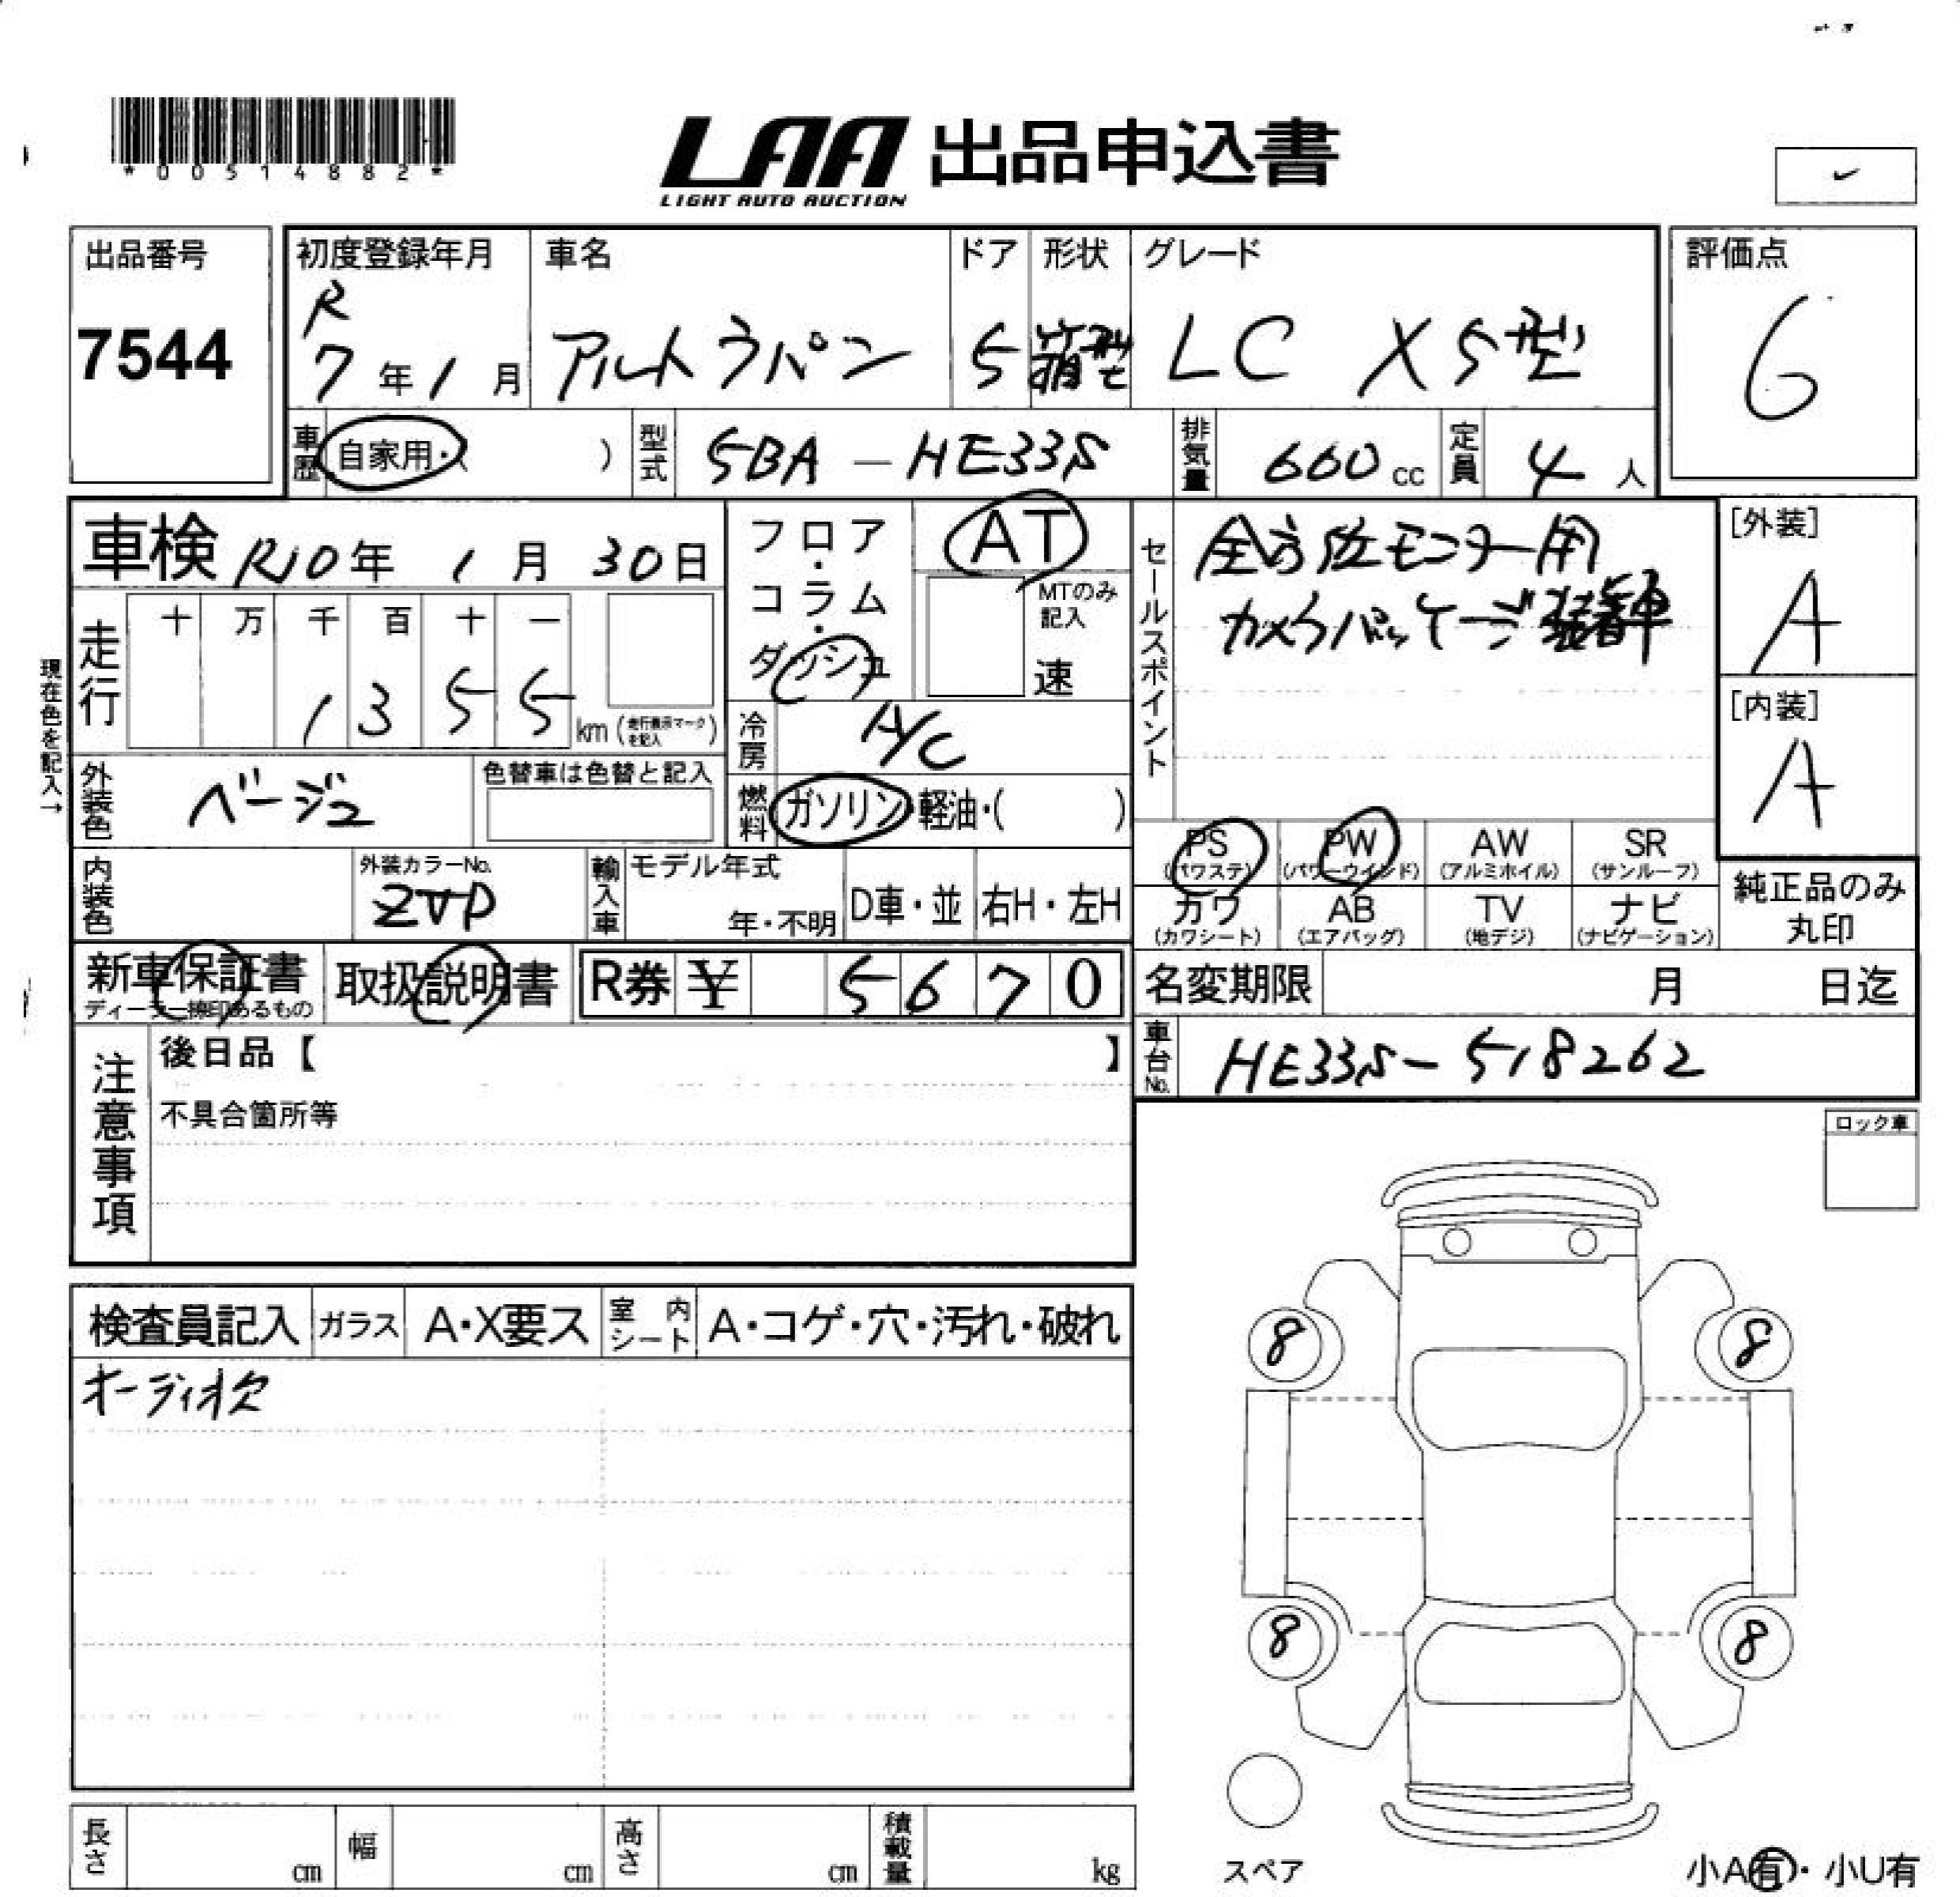 *00514882*
LAA 出品申込書
LIGHT AUTO AUCTION
出品番号
7544
初度登録年月
R
7年1月
車名
アルトラパン
ドア
5
形状
箱型
グレード
LC X 5型
評価点
6
車歴 自家用・( )
型式 5BA-HE33S
排気量 660cc
定員 4人
車検 R10年 1月 30日
フロア・コラム・ダッシュ
AT
MTのみ記入
速
セールスポイント
全方位モニター用
カメラパッケージ装着車
[外装]
A
[内装]
A
現在色を記入→
走行
十 万 千 百 十 一
1 3 5 5 km (走行表示マークを記入)
冷房 A/C
外装色 ベージュ
色替車は色替と記入
燃料 ガソリン・軽油・( )
PS (パワステ)
PW (パワーウインド)
AW (アルミホイル)
SR (サンルーフ)
カワ (カワシート)
AB (エアバッグ)
TV (地デジ)
ナビ (ナビゲーション)
純正品のみ
丸印
内装色
外装カラーNo.
ZVP
輸入車
モデル年式
年・不明
D車・並
右H・左H
新車保証書
ディーラー捺印あるもの
取扱説明書
R券 ¥ 5 6 7 0
名変期限 月 日迄
車台No. HE33S-518262
注意事項
後日品【 】
不具合箇所等
ロック車
検査員記入
ガラス A・X要ス
室内シート A・コゲ・穴・汚れ・破れ
オーディオ欠
8 8
8 8
スペア
小A有・小U有
長さ cm
幅 cm
高さ cm
積載量 kg